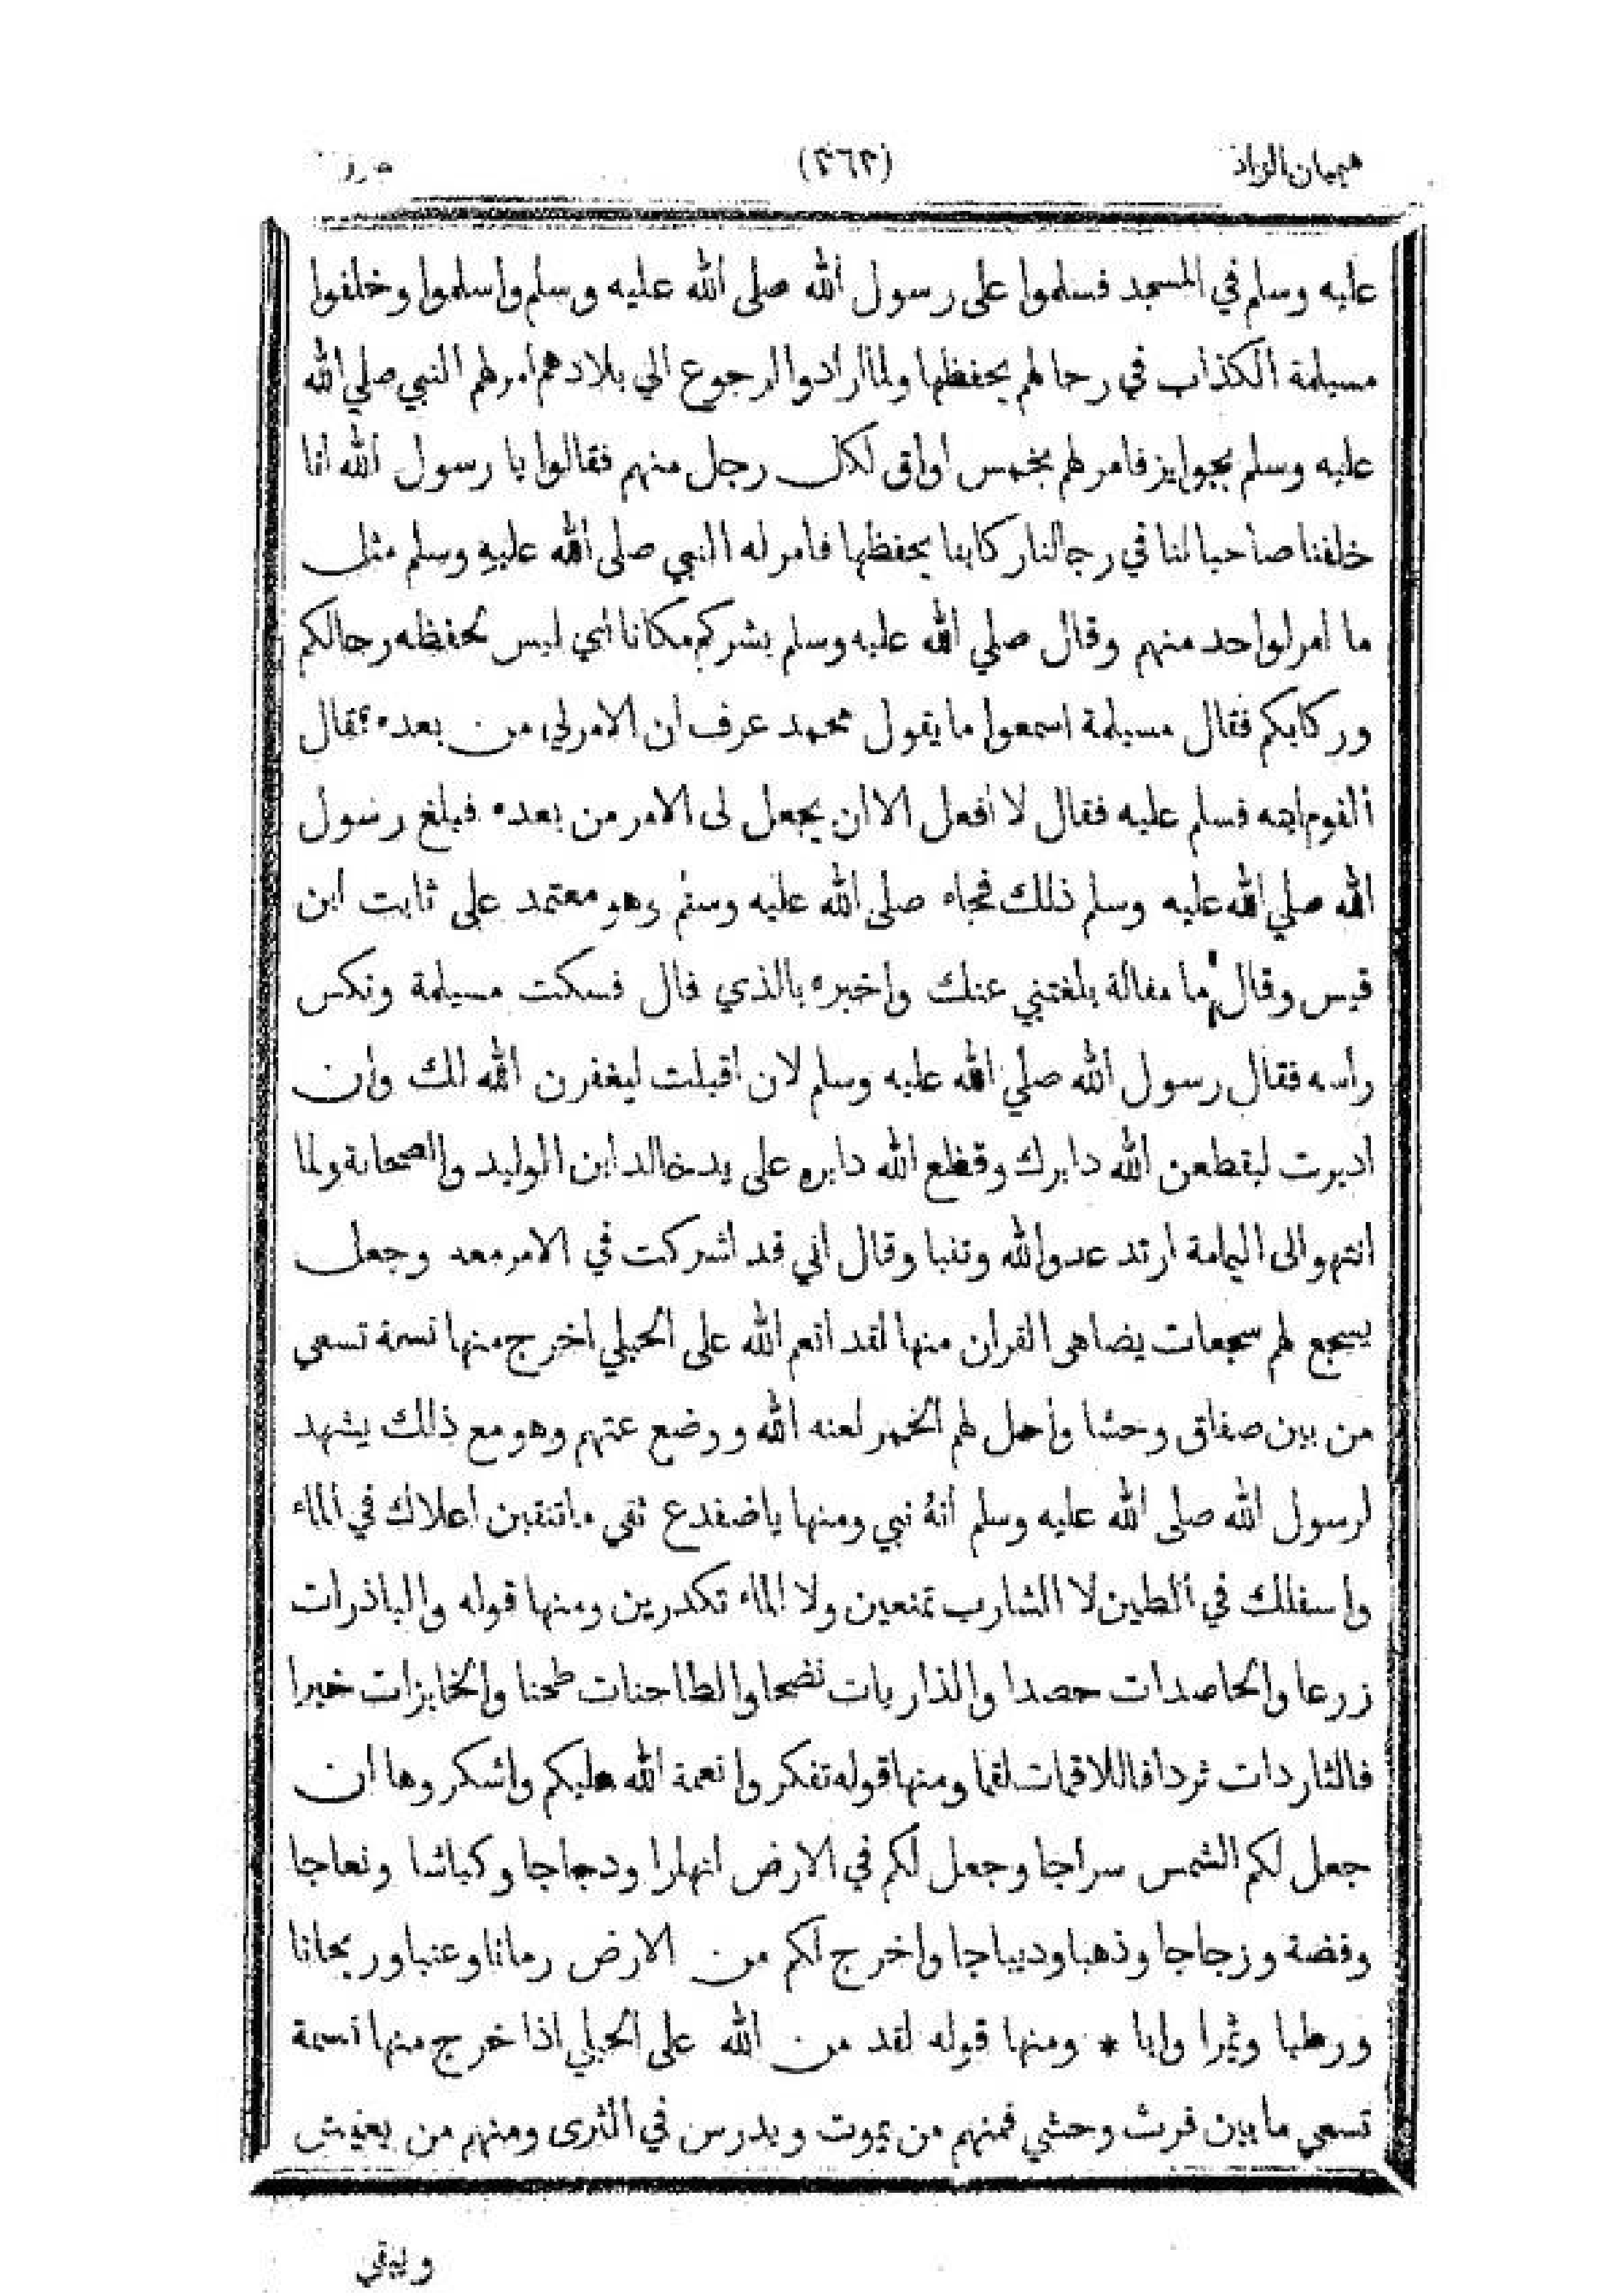 هيميان الزاد (٣٦٣)
عليه وسلم في المسجد فسلموا على رسول الله صلى الله عليه وسلم واسلموا وخلفوا
مسيلمة الكذاب في رحالهم يحفظها ولما ارادوا الرجوع الي بلادهم امر لهم النبي صلي الله
عليه وسلم بجوايز فامر لهم بخمس اواق لكل رجل منهم فقالوا يا رسول الله انا
خلفنا صاحبا لنا في رحالنا ركابنا يحفظها فامر له النبي صلى الله عليه وسلم مثل
ما امر لواحد منهم وقال صلي الله عليه وسلم بشركم مكانا اي ليس تحفظه رحالكم
وركابكم فقال مسيلمة اسمعوا ما يقول محمد عرف ان الامر لي من بعده فقال
القوم ايته فسلم عليه فقال لا افعل الا ان يجعل لى الامر من بعده فبلغ رسول
الله صلي الله عليه وسلم ذلك فجاه صلى الله عليه وسلم وهو معتمد على ثابت ابن
قيس وقال ما مقالة بلغتني عنك واخبره بالذي قال فسكت مسيلمة ونكس
رأسه فقال رسول الله صلي الله عليه وسلم لان اقبلت ليغفرن الله لك وان
ادبرت ليقطعن الله دابرك وقطع الله دابره على يد خالد ابن الوليد والصحابة ولما
انتهو الى اليمامة ارتد عدو الله وتنبا وقال اني قد اشركت في الامر معه وجعل
يسجع لهم سجعات يضاهى القران منها لقد انعم الله على الحبلي اخرج منها نسمة تسعي
من بين صفاق وحشا واحل لهم الخمر لعنه الله ووضع عنهم وهو مع ذلك يشهد
لرسول الله صلى الله عليه وسلم انه نبي ومنها يا ضفدع نقى ما تنقين اعلاك في الماء
واسفلك في الطين لا الشارب تمنعين ولا الماء تكدرين ومنها قوله والباذرات
زرعا والحاصدات حصدا والذاريات نضحا والطاحنات طحنا والخابزات خبزا
فالثاردات ثردا فاللاقمات لقما ومنها قوله تفكروا نعمة الله عليكم واشكروها ان
جعل لكم الشمس سراجا وجعل لكم في الارض انهارا ودجاجا وكباشا ونعاجا
وفضة وزجاجا وذهبا وديباجا واخرج لكم من الارض رمانا وعنبا وريحانا
ورطبا وثمرا وابا * ومنها قوله لقد من الله على الحبلي اذا خرج منها نسمة
تسعي ما بين فرث وحشي فمنهم من يموت ويدرس في الثرى ومنهم من يعيش
ويبقي